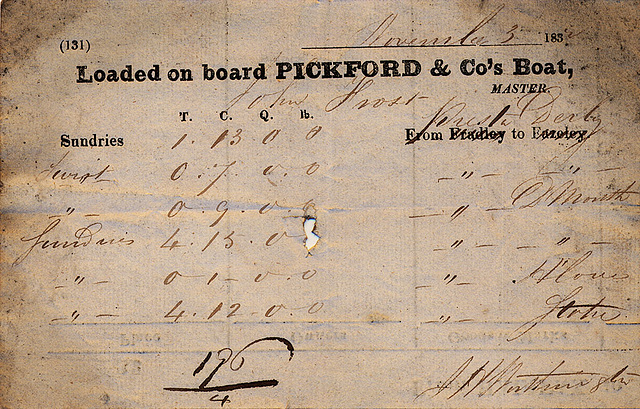 (131) November 3 183
Loaded on board PICKFORD & Co's Boat,
John Frost MASTER.
T. C. Q. lb.
Sundries 1. 13 0 0 From Bradley to Eazeley, Preston Derby
0. 7 0. 0 -"- -"-
-"- 0. 9. 0 0 -"- DMouth
Sundries 4. 15. 0 -"- -"-
-"- 0 1 - 0. 0 -"-
-"- 4. 12 0. 0 -"- Stoke
196
4